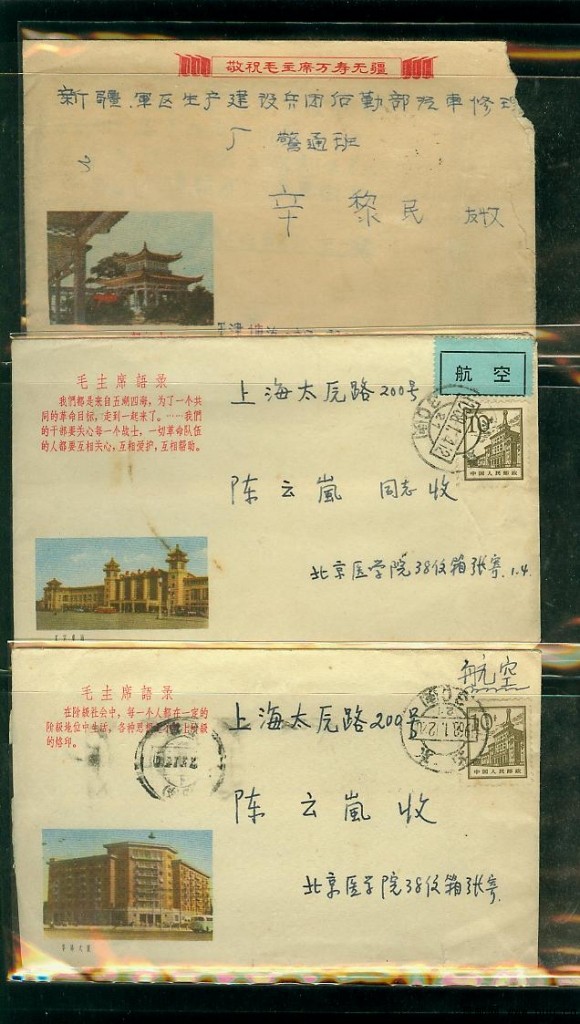 敬祝毛主席万寿无疆
新疆军区生产建设兵团后勤部汽車修理
厂 警通班
辛 黎民 收
毛主席語录
我們都是来自五湖四海，为了一个共
同的革命目标，走到一起来了。……我們
的干部要关心每一个战士，一切革命队伍
的人都要互相关心，互相爱护，互相帮助。
航空
上海太原路200号
10
中国人民邮政
陈云嵐 同志收
北京医学院38信箱张寄.1.4.
毛主席語录
在阶級社会中，每一个人都在一定的
阶級地位中生活，各种思想
上阶級
的烙印。
航空
上海太原路200号
10
中国人民邮政
陈云嵐 收
北京医学院38信箱张寄.